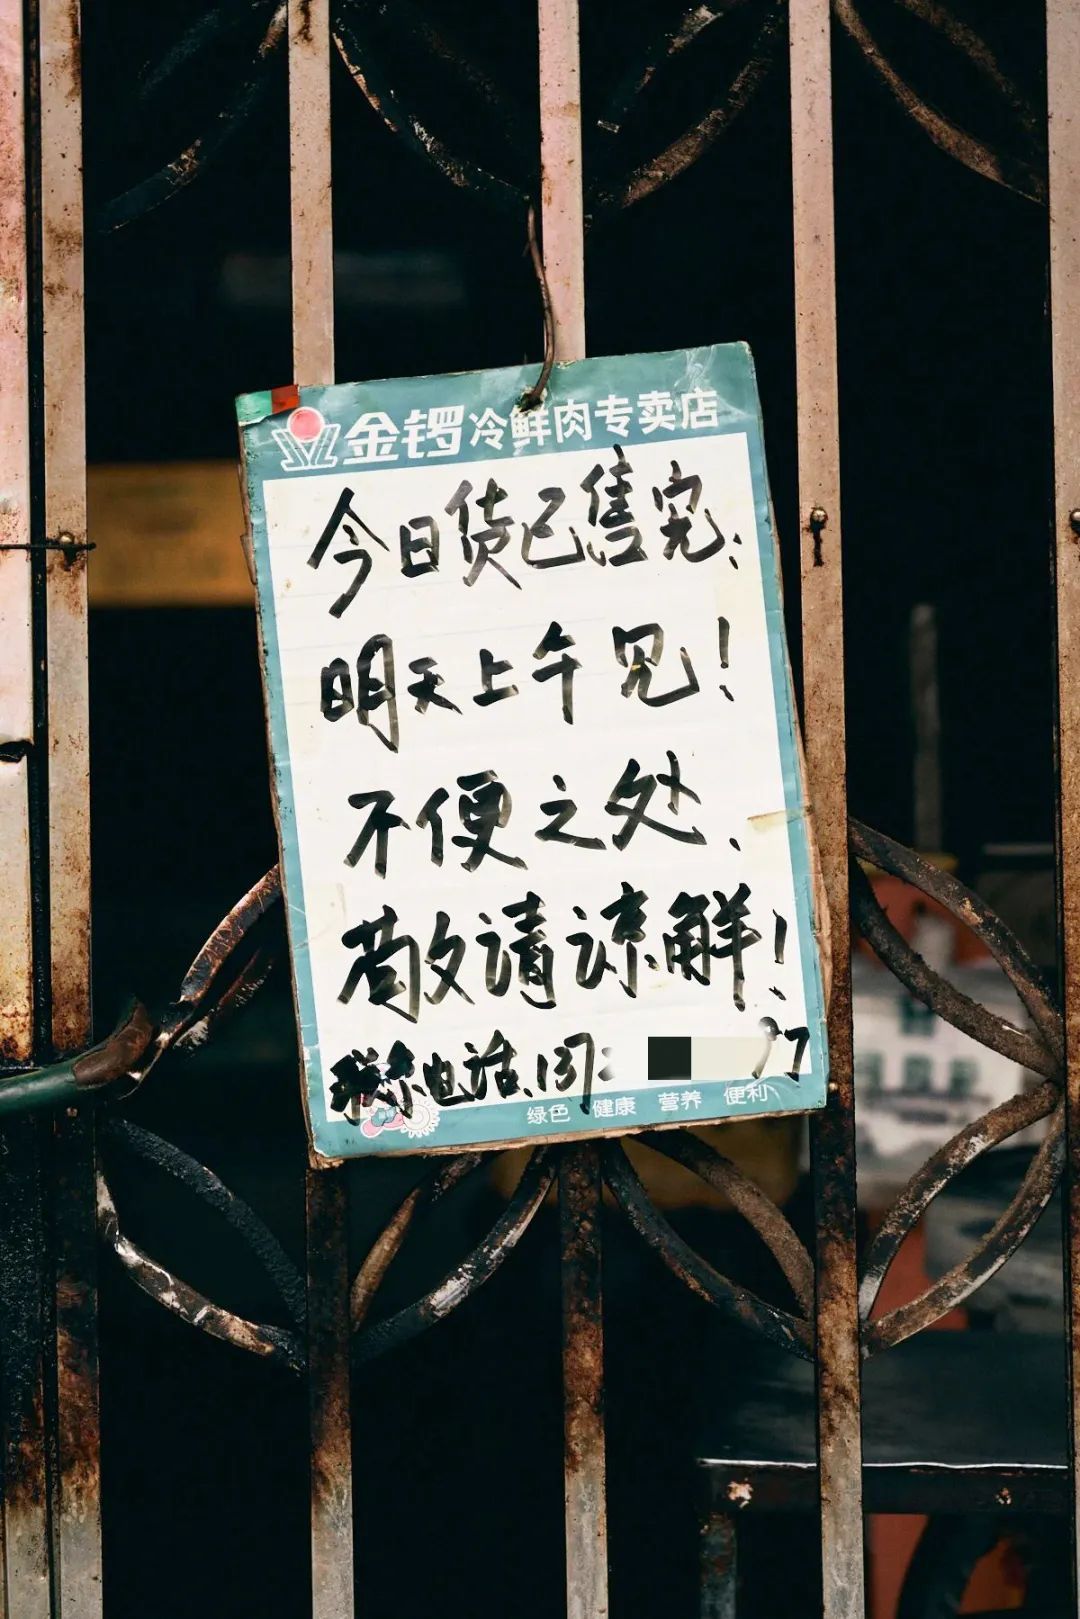 金锣冷鲜肉专卖店
今日货已售完;
明天上午见!
不便之处、
敬请谅解!
联系电话、137:
绿色 健康 营养 便利